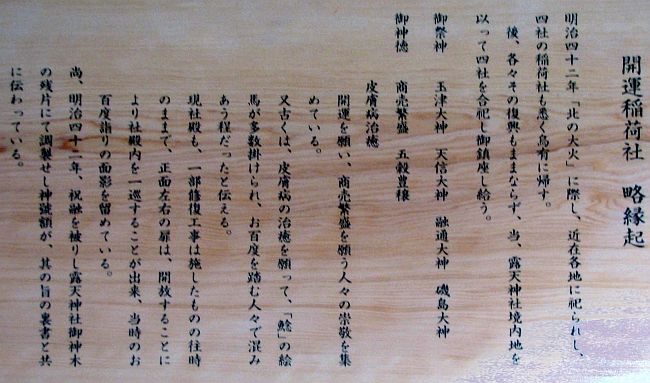 開運稲荷社　略縁起
明治四十二年「北の大火」に際し、近在各地に祀られし、
四社の稲荷社も悉く烏有に帰す。
後、各々その復興もままならず、当、露天神社境内地を
以って四社を合祀し御鎮座し給う。
御祭神　玉津大神　天信大神　融通大神　磯島大神
御神徳　商売繁盛　五穀豊穣
皮膚病治癒
開運を願い、商売繁盛を願う人々の崇敬を集
めている。
又古くは、皮膚病の治癒を願って、「鯰」の絵
馬が多数掛けられ、お百度を踏む人々で混み
あう程だったと伝える。
現社殿も、一部修復工事は施したものの往時
のままで、正面左右の扉は、開放することに
より社殿内を一巡することが出来、当時のお
百度詣りの面影を留めている。
尚、明治四十二年、祝融を被りし露天神社御神木
の残片にて調製せし神號額が、其の旨の裏書と共
に伝わっている。